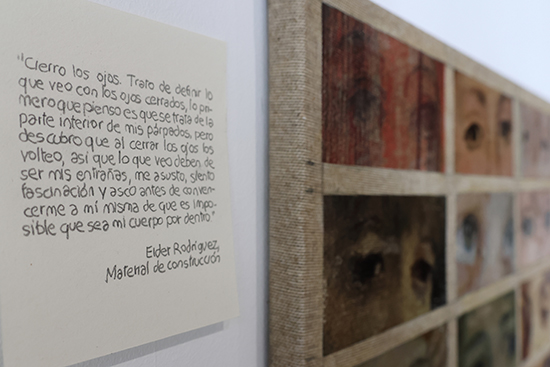 "Cierro los ojos. Trato de definir lo
que veo con los ojos cerrados, lo pri-
mero que pienso es que se trata de la
parte interior de mis párpados, pero
descubro que al cerrar los ojos los
volteo, así que lo que veo deben de
ser mis entrañas, me asusto, siento
fascinación y asco antes de conven-
cerme a mí misma de que es impo-
sible que sea mi cuerpo por dentro."
Elder Rodríguez,
Material de construcción